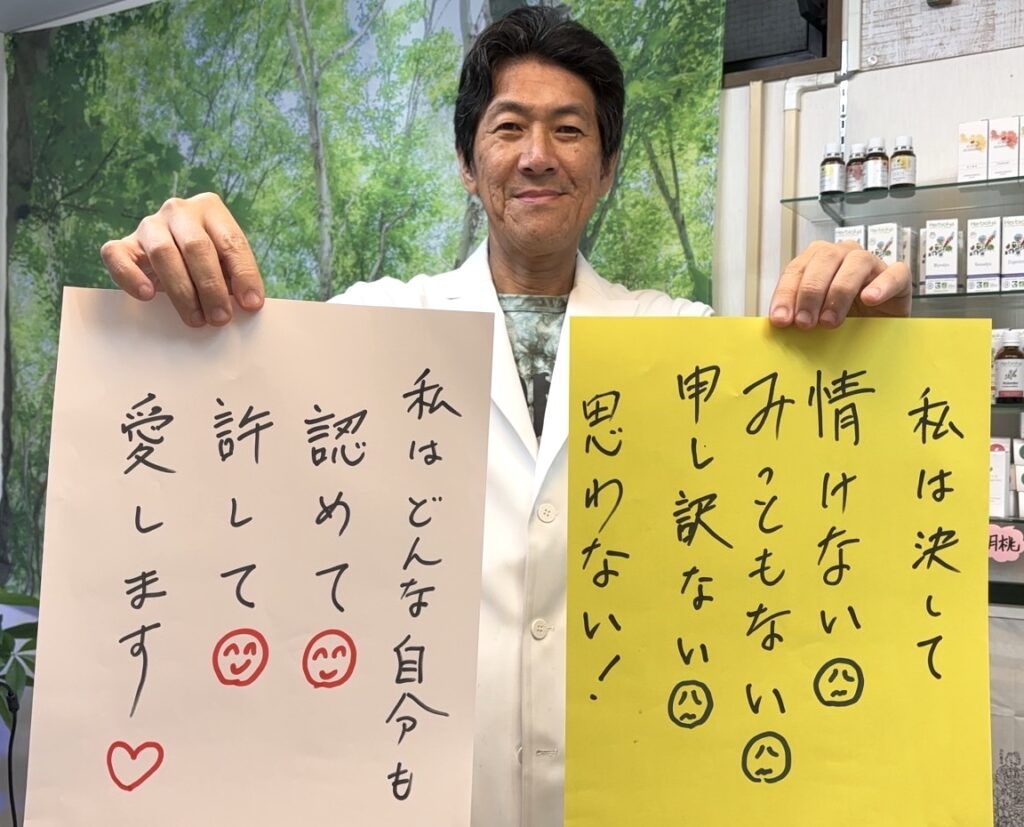 私は決して
情けない
みっともない
申し訳ない
思わない!
私はどんな自分も
認めて
許して
愛します
Herbiona
月桃